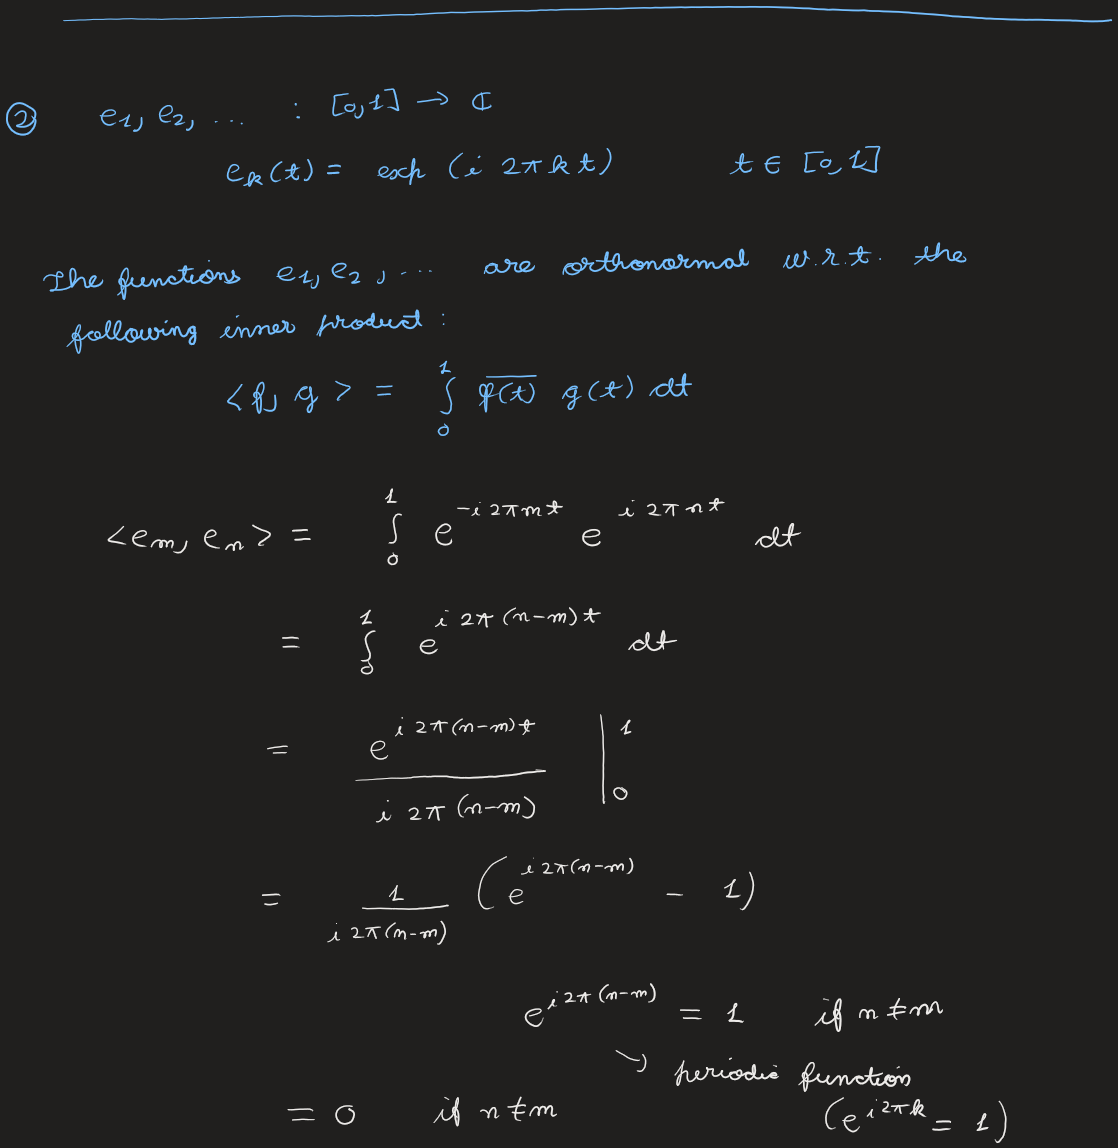 ② e₁, e₂, ... : [0,1] → ℂ
eₖ(t) = exp (i 2π k t) t ∈ [0,1]
The functions e₁, e₂, ... are orthonormal w.r.t. the
following inner product :
<f, g> = ∫₀¹ \overline{f(t)} g(t) dt
<eₘ, eₙ> = ∫₀¹ e^{-i 2π m t} e^{i 2π n t} dt
= ∫₀¹ e^{i 2π (n-m) t} dt
= \frac{e^{i 2π (n-m) t}}{i 2π (n-m)} |₀¹
= \frac{1}{i 2π (n-m)} (e^{i 2π (n-m)} - 1)
e^{i 2π (n-m)} = 1 if n ≠ m
↘ periodic function
= 0 if n ≠ m (e^{i 2π k} = 1)